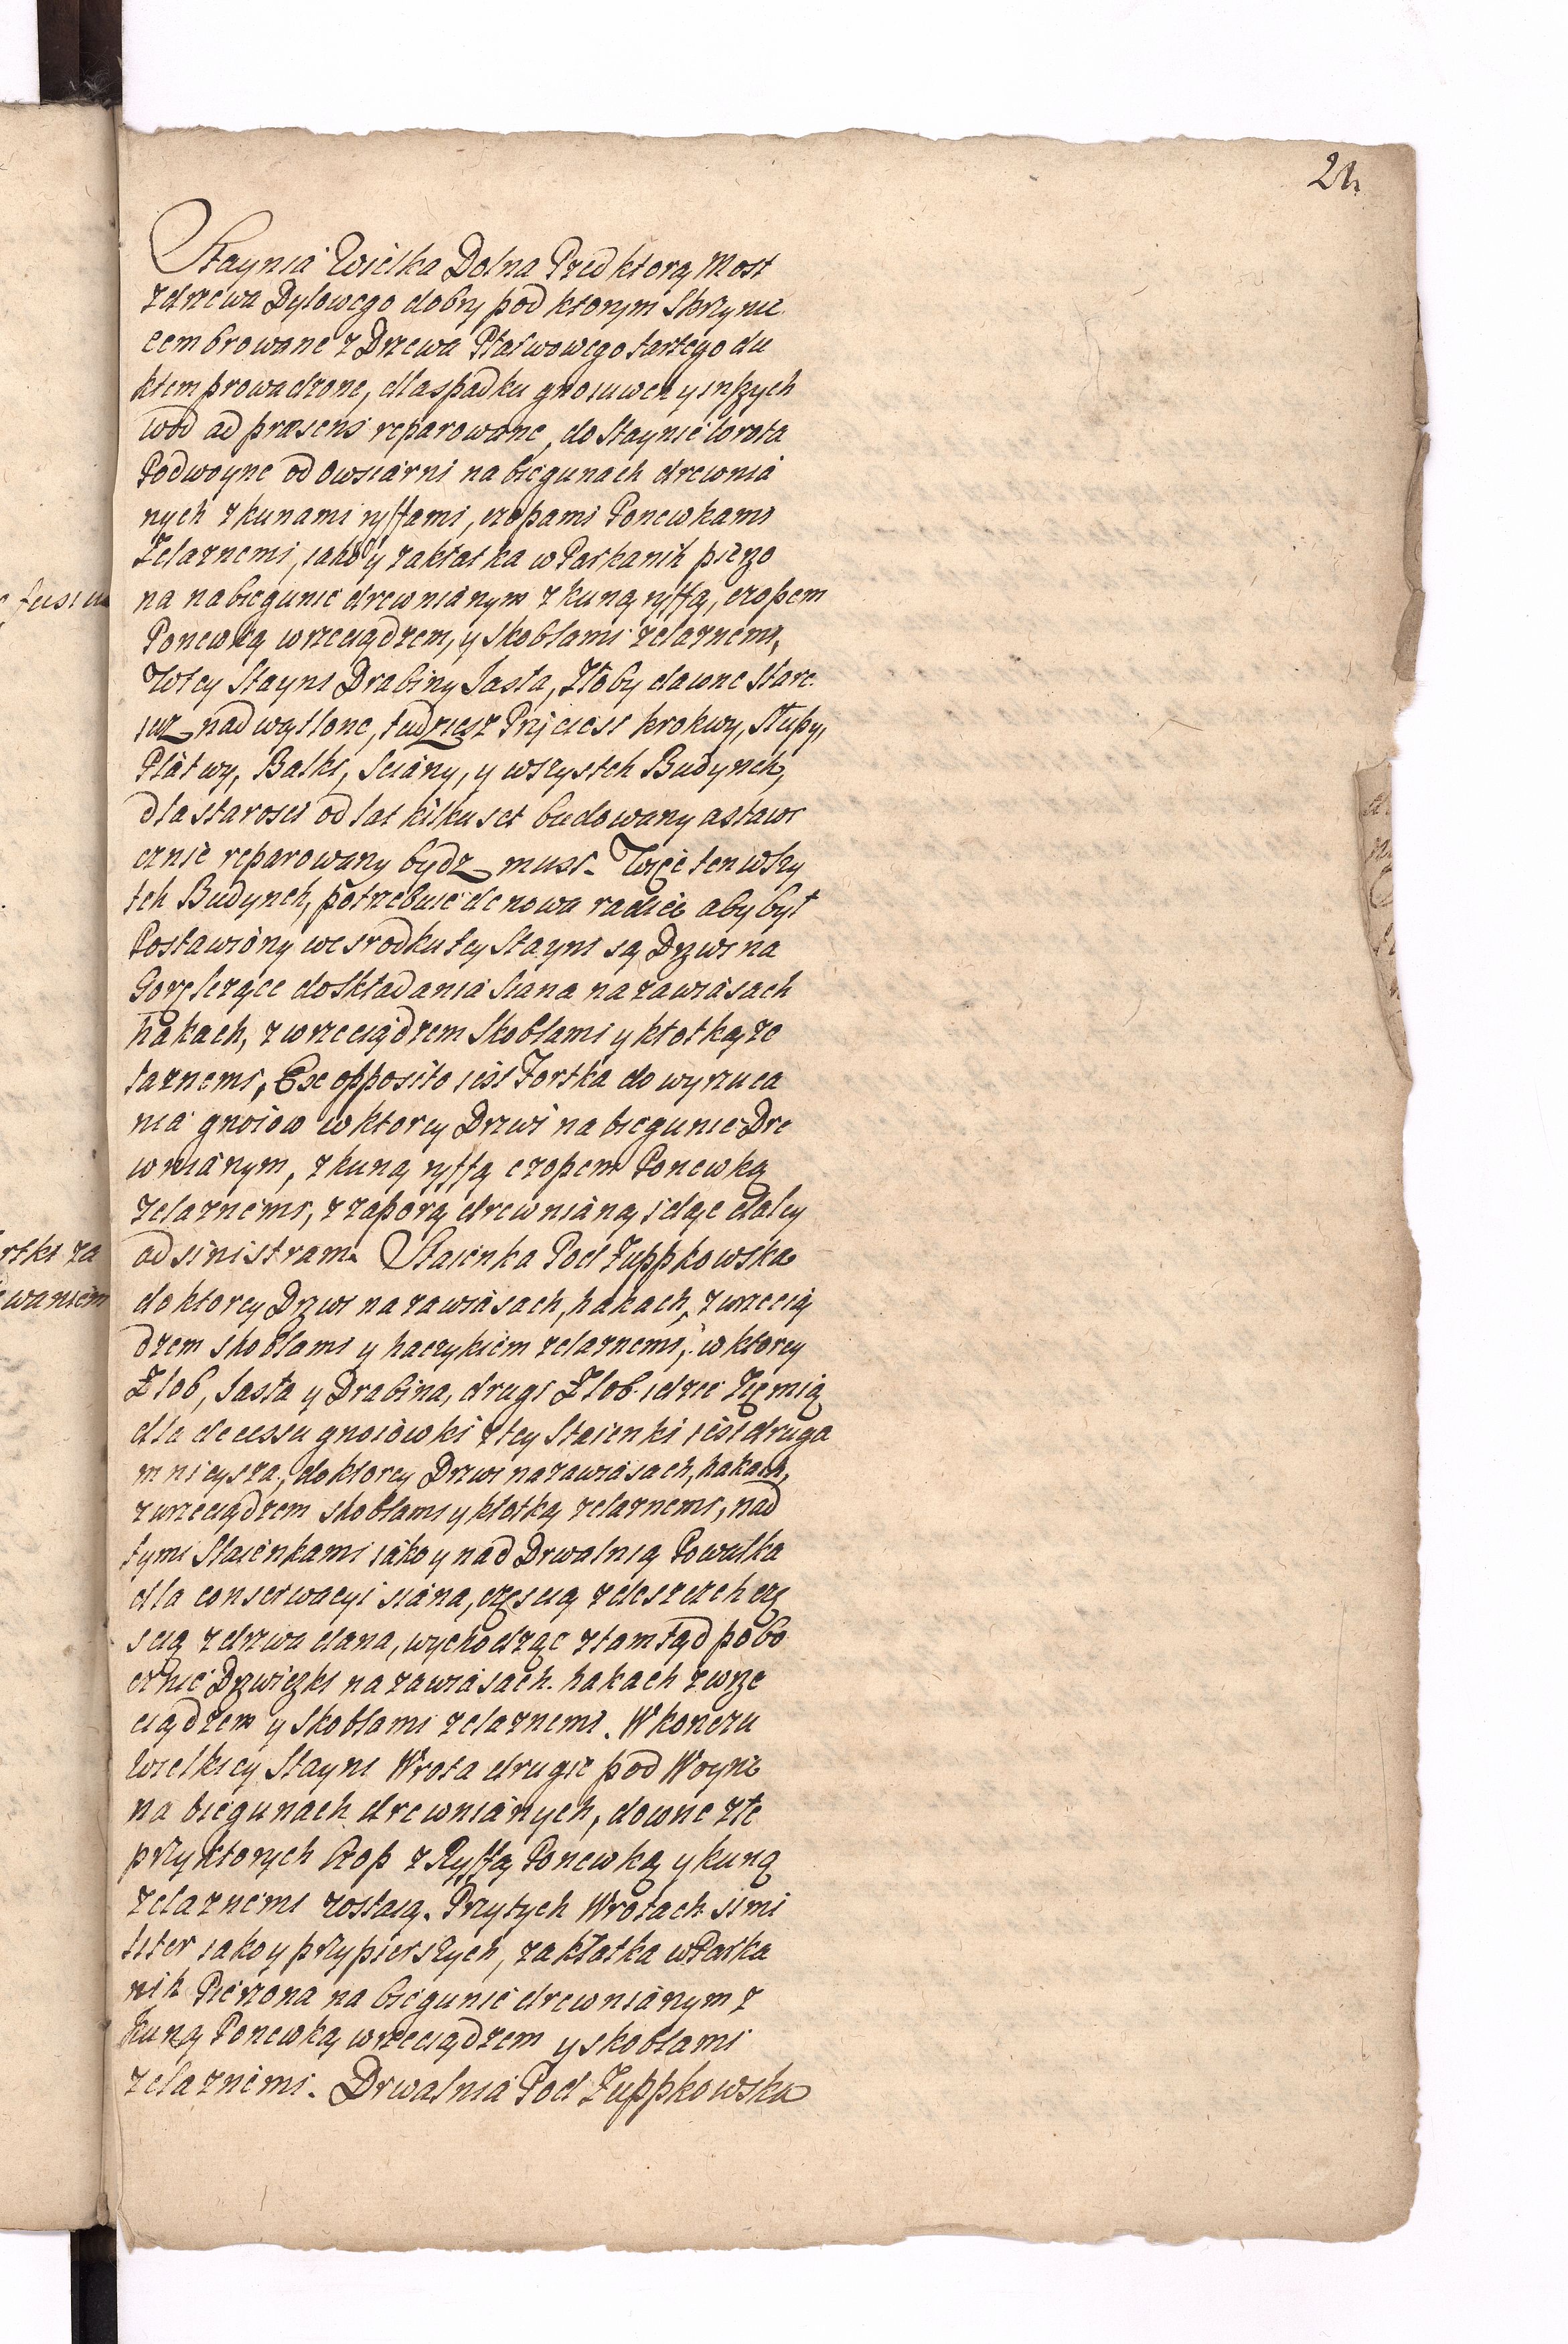 21
Staynia Wielka Dolna Przed ktorą Most
zdrzewa Dylowego dobry pod ktorym Skrzynie
cembrowane z Drzewa Płatwowego tartego du
ktem prowadzone, dla spadku gnoiuwek y inszych
wod ad præsens reparowane, do Staynie wrota
Podwoyne od Owsiarni na biegunach drewnia
nych z kunami ryffami, czopami Ponewkami
Zelaznemi, iako y zakłatka w Parkanik pierzo
na na biegunie drewnianym z kuną ryffą, czopem
Ponewką wrzeciądzem, y Skoblami zelaznemi,
W tey Stayni Drabiny Jasła, Złoby dawne Stare
iuz nadwątlone, tudziesz Przyciesi krokwy, Słupy,
Płatwy, Balki, Sciány, y wszystek Budynek,
dla starosci od lat kilkuset budowany a stawi
cznie reparowany bydz musi. Więc ten wszy
tek Budynek, potrzebuie de nowa radice aby był
Postawiony we srodku tey Stayni są Drzwi na
Gorę lezące do składania Siana na zawiasach
hakach, z wrzeciądzem Skoblami y kłotką ze
laznemi, Ex opposito iest Fortka do wyrzuca
nia gnoiow w ktorey Drzwi na biegunie Dre
wnianym, z kuną ryffą czopem Ponewką
zelaznemi, z zaporą drewnianą idąc daley
ad sinistram. Staienka Pod Zuppkowska
do ktorey Drzwi na zawiasach, hakach, z wrzecią
dzem skoblami y haczykiem zelaznemi, w ktorey
Zlob, Jasła y Drabina, drugi Zlob idzie Ziemią
dla decessu gnoiowki z tey Staienki iest druga
mnieysza, do ktorey Drzwi na zawiasach, hakach,
z wrzeciądzem skoblami y kłotką zelaznemi, nad
tymi Staienkami iako y nad Drwalnią Powałka
dla conserwacyi siana, częscią z deszczek czę
scią z drzwa dana, wychodząc ztamtąd pobo
cznie Drzwiczki na zawiasach hakach z wrze
ciądzem y Skoblami zelaznemi. W koncu
Wielkiey Stayni Wrota drugie pod Woyne
na biegunach drewnianych, dawne złe
przy ktorych Czop z Ryffą Ponewką y kuną
zelaznemi zostaią. Przy tych Wrotach simi
liter iako y przy pierszych, zakłatka w Parka
nik Pierzona na biegunie drewnianym z
kuną Ponewką wrzeciądzem y skoblami
zelaznemi. Drwalnia Pod Zuppkowska
rtki za
waniem